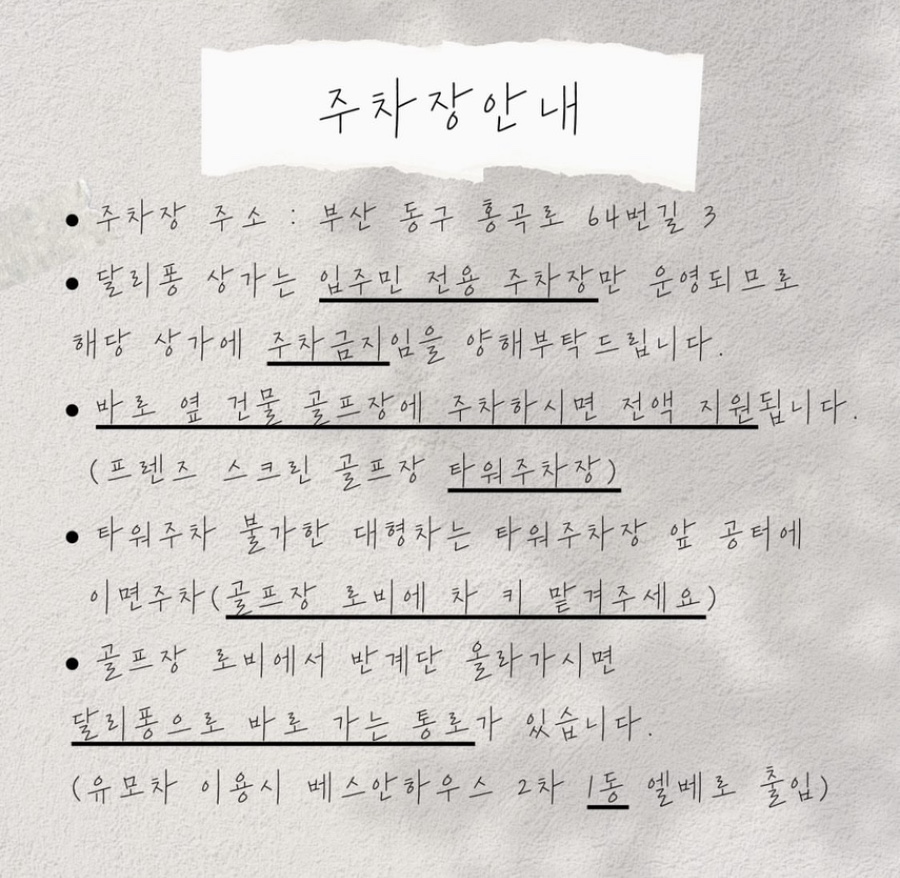 주차장안내
• 주차장 주소 : 부산 동구 홍곡로 64번길 3
• 달리퐁 상가는 입주민 전용 주차장만 운영되므로
해당 상가에 주차금지임을 양해부탁드립니다.
• 바로 옆 건물 골프장에 주차하시면 전액 지원됩니다.
(프렌즈 스크린 골프장 타워주차장)
• 타워주차 불가한 대형차는 타워주차장 앞 공터에
이면주차(골프장 로비에 차 키 맡겨주세요)
• 골프장 로비에서 반계단 올라가시면
달리퐁으로 바로 가는 통로가 있습니다.
(유모차 이용시 베스안하우스 2차 1동 엘베로 출입)